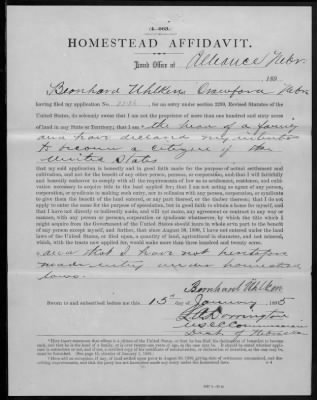 (4-063.)
HOMESTEAD AFFIDAVIT.
Land Office at Alliance Nebr.
189
Bernhard Uhlken Crawford Nebr
having filed my application No. , for an entry under section 2289, Revised Statutes of the
United States, do solemnly swear that I am not the proprietor of more than one hundred and sixty acres
of land in any State or Territory; that I am the head of a family
and have declared my intention
to become a citizen of the
United States
that my said application is honestly and in good faith made for the purpose of actual settlement and
cultivation, and not for the benefit of any other person, persons, or corporation, and that I will faithfully
and honestly endeavor to comply with all the requirements of law as to settlement, residence, and culti-
vation necessary to acquire title to the land applied for; that I am not acting as agent of any person,
corporation, or syndicate in making such entry, nor in collusion with any person, corporation, or syndicate
to give them the benefit of the land entered, or any part thereof, or the timber thereon; that I do not
apply to enter the same for the purpose of speculation, but in good faith to obtain a home for myself, and
that I have not directly or indirectly made, and will not make, any agreement or contract in any way or
manner, with any person or persons, corporation or syndicate whatsoever, by which the title which I
might acquire from the Government of the United States should inure in whole or in part to the benefit
of any person except myself, and further, that since August 30, 1890, I have not entered under the land
laws of the United States, or filed upon, a quantity of land, agricultural in character, and not mineral,
which, with the tracts now applied for, would make more than three hundred and twenty acres.
and that I have not heretofore
made entry under homestead
laws.
Bernhard Uhlken
Sworn to and subscribed before me this 15 day January, 1895
Dorrington
US Commissioner
Dist of Nebraska